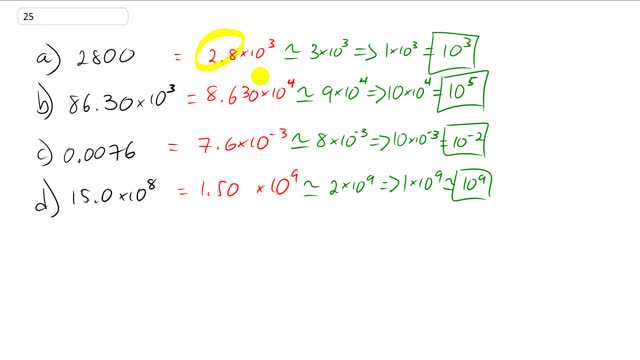 25
a) 2800 = 2.8×10³ ≃ 3×10³ => 1×10³ = 10³
b) 86.30×10³ = 8.630×10⁴ ≃ 9×10⁴ => 10×10⁴ = 10⁵
c) 0.0076 = 7.6×10⁻³ ≃ 8×10⁻³ => 10×10⁻³ = 10⁻²
d) 15.0×10⁸ = 1.50 ×10⁹ ≃ 2×10⁹ => 1×10⁹ ≃ 10⁹